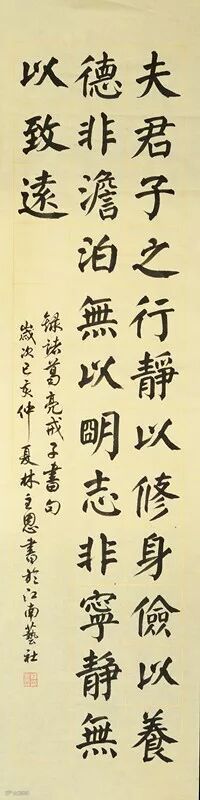 夫君子之行靜以修身儉以養
德非澹泊無以明志非寧靜無
以致遠
録諸葛亮戒子書句
歲次己亥仲夏林主恩書於江南藝社